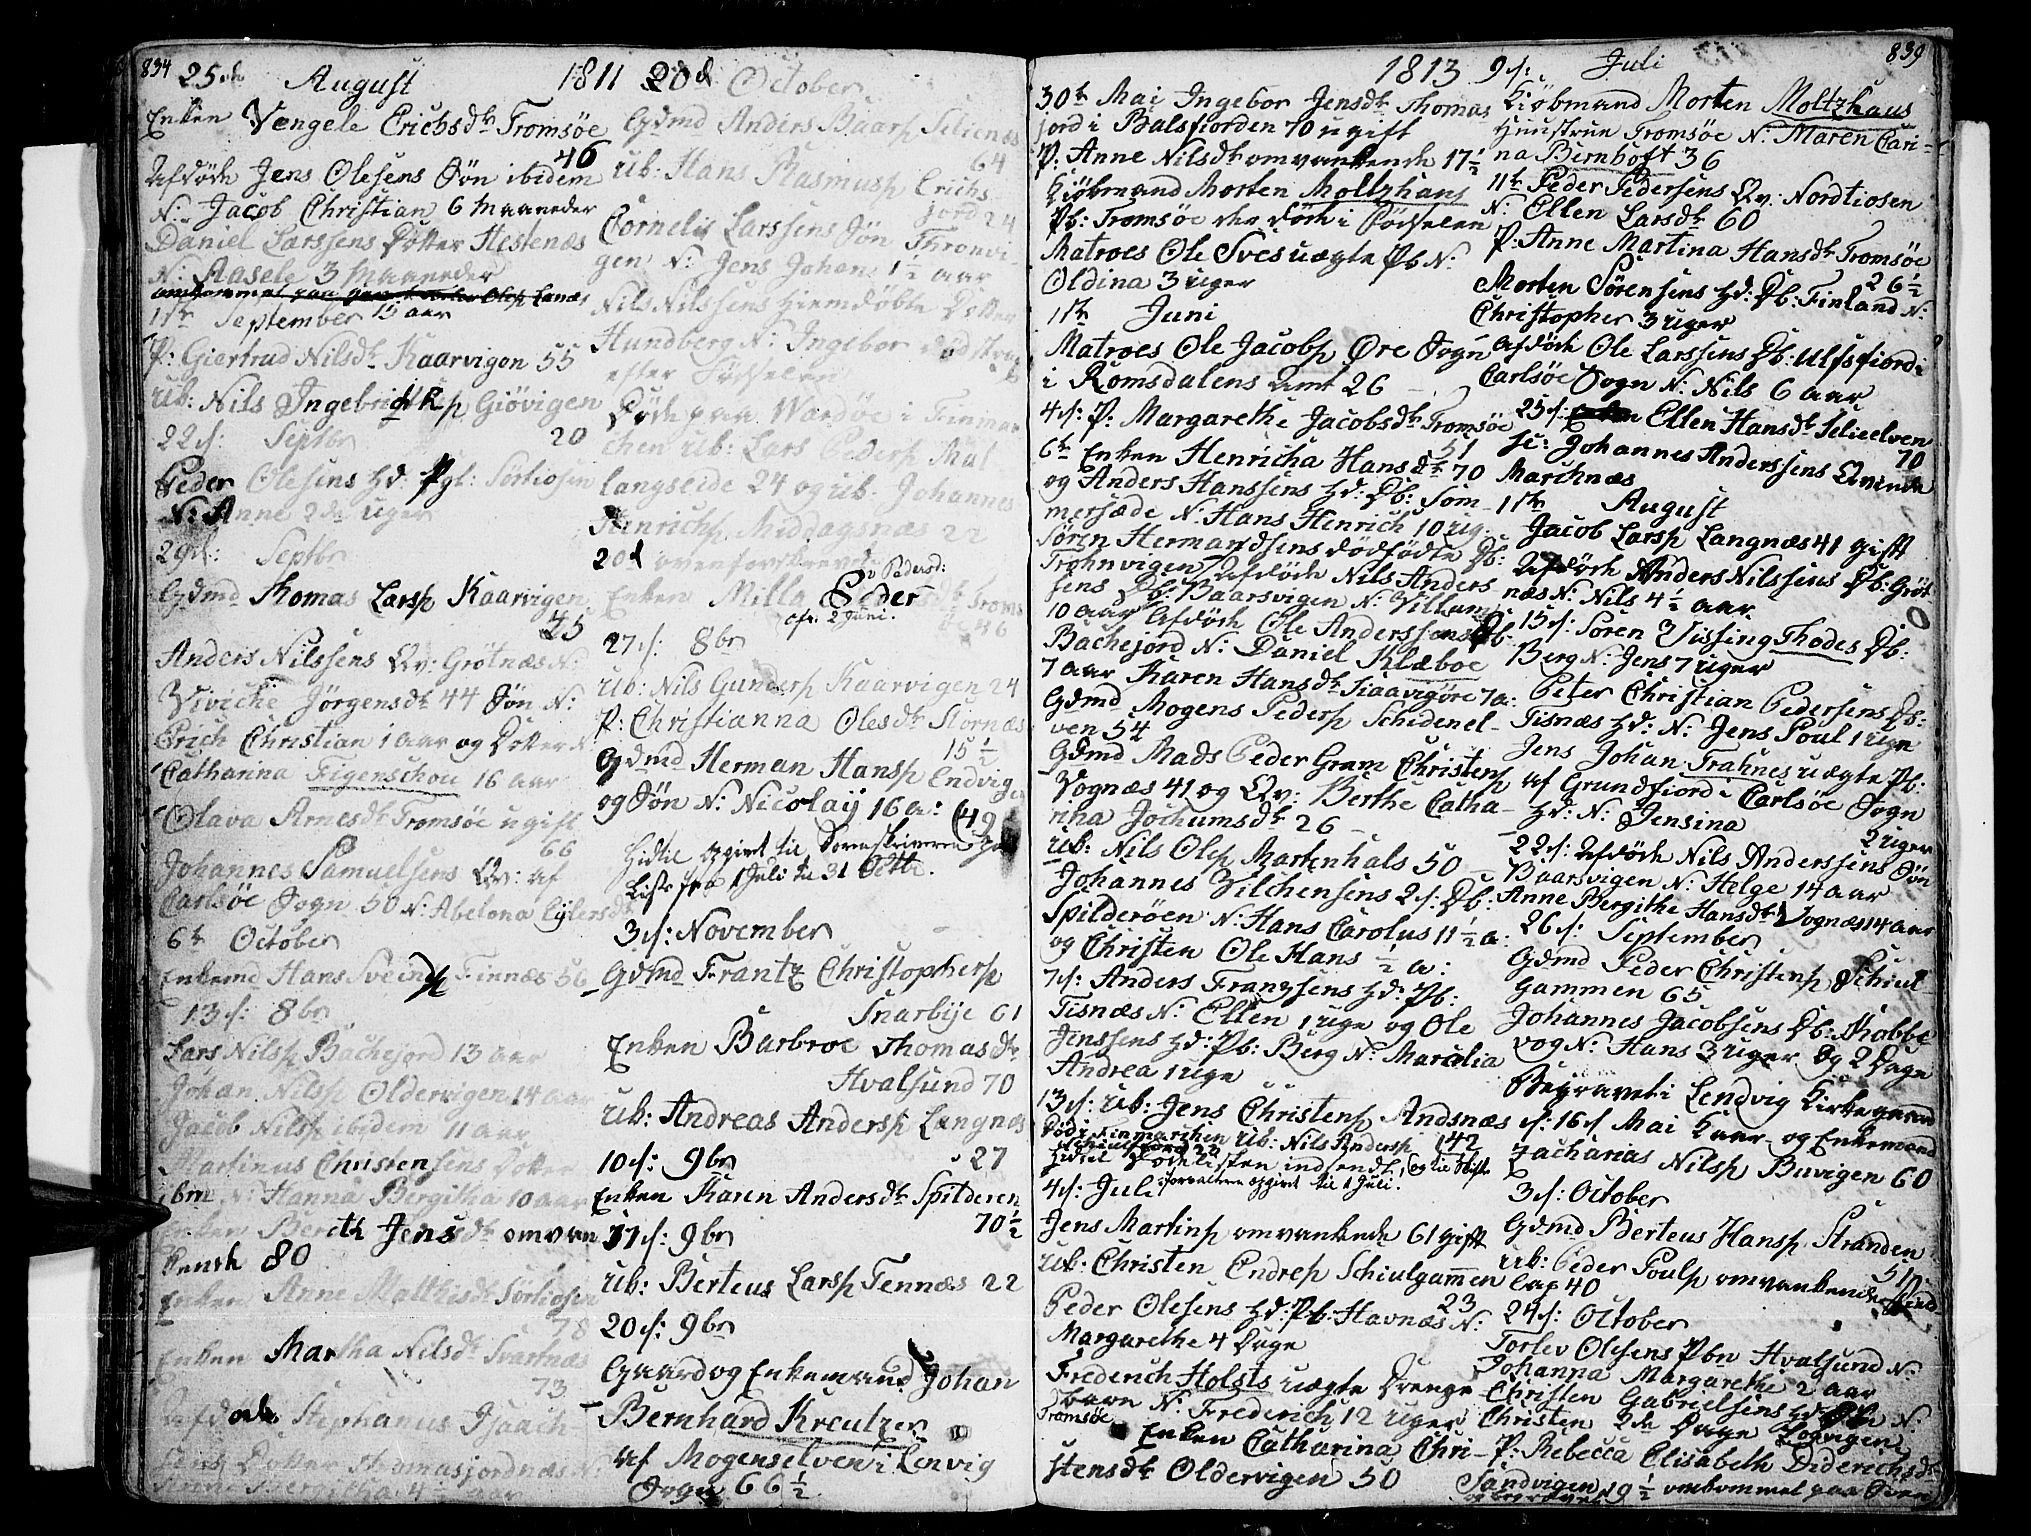 834
25de August 1811
Enken Vengele Erichsdtr Tromsøe
46
Afdøde Jens Olesens Søn ibidem
N: Jacob Christian 6 Maaneder
Daniel Larssens Dotter Hestenæs
N: Aasele 3 Maaneder
11te September 15 aar
P: Giertrud Nilsdtr Kaarvigen 55
Ub: Nils Ingebrigtsen Giövigen
22d: Septbr 20
Peder Olesens hd: Pgl: Sørtiosen
N: Anne 2de uger
29d: Septbr
Gdmd Thomas Larsp Kaarvigen
75
Anders Nilssens Qv: Grøtnæs N:
Viviche Jørgensdtr 44 Søn N:
Erich Christian 1 aar og Dotter N:
Catharina Figenschou 16 aar
Olava Arnesdtr Tromsøe ugift
66
Johannes Samuelsens Qv: af
Carlsøe Sogn 50 N: Abelona Eylersdtr
6te October
Enkemd Hans Svends Finnæs 56
13d: 8br
Lars Nilsp Bachejord 13 aar
Johan Nilsp Oldervigen 14 aar
Jacob Nilsp ibidem 11 aar
Martinus Christensens Dotter
ibm N: Hanna Bergitha 10 aar
Enken Bereth Jensdtr omvan
kende 80
Enken Anne Mathisdtr Sørtiosen
78
Enken Martha Nilsdtr Svartnæs
73
Afdøde Stephanus Isaach-
sens Dotter Thomasjordnæs N:
20d October
Gdmd Anders Baarsp Selienæs
64
Ub: Hans Rasmusp Erichs
jord 24
Cornelis Larssens Søn Thronvi-
gen N: Jens Johan 1½ aar
Nils Nilssens hiemdøbte Dotter
Hundberg N: Ingebor død strax
efter Fødselen
Døde paa Wardøe i Finmar
chen Ub: Lars Pedersp Mal
langseide 24 og Ub: Johannes
Henrichsp Middagsnæs 22
20d ovenforskrevne
Enken Milla Pedersdtr Troms
øe 46
27d: 8br
Ub: Nils Gundersp Kaarvigen 24
P: Christianna Olesdtr Stornæs
15½
Gdmd Herman Hansp Lendvig
og Søn N: Nicolaij 16 a: (49
Hidtil opgivet til Sorenskriveren
Liste fra 1 Juli til 31 Octbr.
3d: November
Gdmd Frantz Christophersp
Snarbye 61
Enken Barbroe Thomasdtr
Hvalsund 70
Ub: Andreas Andersp Langnæs
27
10d: 9br
Enken Karen Andersdtr Spilderen
70½
17d: 9br
Ub: Berteus Larsp Tennæs 22
20d: 9br
Gaard og Enkemand Johan
Bernhard Kreutzer
af Mogenselven i Lenvig
Sogn 66½
1813
30te Mai Ingebor Jensdtr Thomas
jord i Balsfiorden 70 ugift
P: Anne Nilsdtr omvankende 17½
Kiøbmand Morten Moltzhaus
Pb: Tromsøe der døde i Fødselen
Matroes Ole Sves uægte Pb N:
Oldina 3 uger
11te Juni
Matroes Ole Jacobsp Øre Sogn
i Romsdalens amt 26
4d: P: Margarethe Jacobsdtr Tromsøe
51
6te Enken Henricha Hansdtr 70
og Anders Hanssens hd: Db: Som-
mersæde N: Hans Henrich 10 ug.
Søren Hermandsens dødfødte Db:
Trohnvigen Afdøde Nils Anders
sens Db: Baarsvigen N: Villum
10 aar Afdøde Ole Anderssens Db
Bachejord N: Daniel Klæboe
7 aar Karen Hansdtr Tiaavigøre 7a:
Gdmd Mogens Pedersp Schidenel-
ven 54
Gdmd Mads Peder Gram Christensp
Vognæs 41 og Qv: Berthe Catha-
rina Jochumsdtr 26
Ub: Nils Olesp Martenhals 50
Johannes Vilchensens 2d: Db:
Spilderöen N: Hans Carolus 11½ a:
og Christen Ole Hans ½ a:
7d: Anders Frantzsens hd: Pb:
Tisnæs N: Ellen 1 uge og Ole
Jenssens hd: Pb: Berg N: Marælia
Andrea 1 uge
13d: Ub: Jens Christensp Andsnæs
42
Død i Finmarchen Ub: Nils Andersp
Hidtil Dødelisten indsendt
4d: Juli opgivet til 1 Juli.
Jens Martinsp omvankende 61 gift
Ub: Christen Endresp Schiulgamen
23
Peder Olesens hd: Pb: Havnæs N:
Margarethe 4 Dage
Frederich Holsts uægte Drenge-
barn N: Frederich 12 uger
Tromsøe
Enken Catharina Chri-
stensdtr Oldervigen 50
839
9d: Juli
Kiøbmand Morten Moltzhaus
Huustrue Tromsøe N: Maren Cari-
na Bernhoft 36
11te Peder Pedersens Qv: Nordtiosen
N: Ellen Larsdtr 60
P: Anne Martina Hansdtr Tromsøe
26½
Morten Sørensens hd: Db: Finland N:
Christopher 3 uger
Afdøde Ole Larssens Db: Ulfsfiord i
Carlsøe Sogn N: Nils 6 aar
25d: Ellen Hansdtr Selieelven
70
Johannes Anderssens Qvinde
Marchnæs
11te August
Jacob Larsp Langnæs 41 gift
Afdøde Anders Nilssens Db: Grøt
næs N: Nils 4½ aar
15d: Søren Vissing Thodes Db:
Berg N: Jens 7 uger
Peter Christian Pedersens Db:
Tisnæs hd: N: Jens Poul 1 uge
Jens Johan Trahnes uægte Pb:
af Grundfiord i Carlsøe Sogn
hd: N: Jensina
2 uger
22d: Afdøde Nils Anderssens Søn
Baarsvigen N: Helge 14 aar
Anne Bergithe Hansdtr Vognæs 14 aar
26d: September
Gdmd Peder Christensp Schiul-
gammen 65
Johannes Jacobsens Db: Kobbe
vog N: Hans 3 uger og 2 Dage
Begravet i Lendvig Kirkegaard
d: 16d Mai Gaar- og Enkemand
Zacharias Nilsp Buvigen 60
3d: October
Gdmd Berteus Hansp Stranden
51
Ub: Peder Poulsp omvankende Find
lap 40
24d: October
Torlev Olesens Pbn Hvalsund N:
Johanna Margarethe 2 aar
Christen Gabrielsens hd: Db N:
Christen 3de Dage
P: Rebecca Elisabeth Diderichsdtr
Sandvigen 19½ omkommet paa Søen